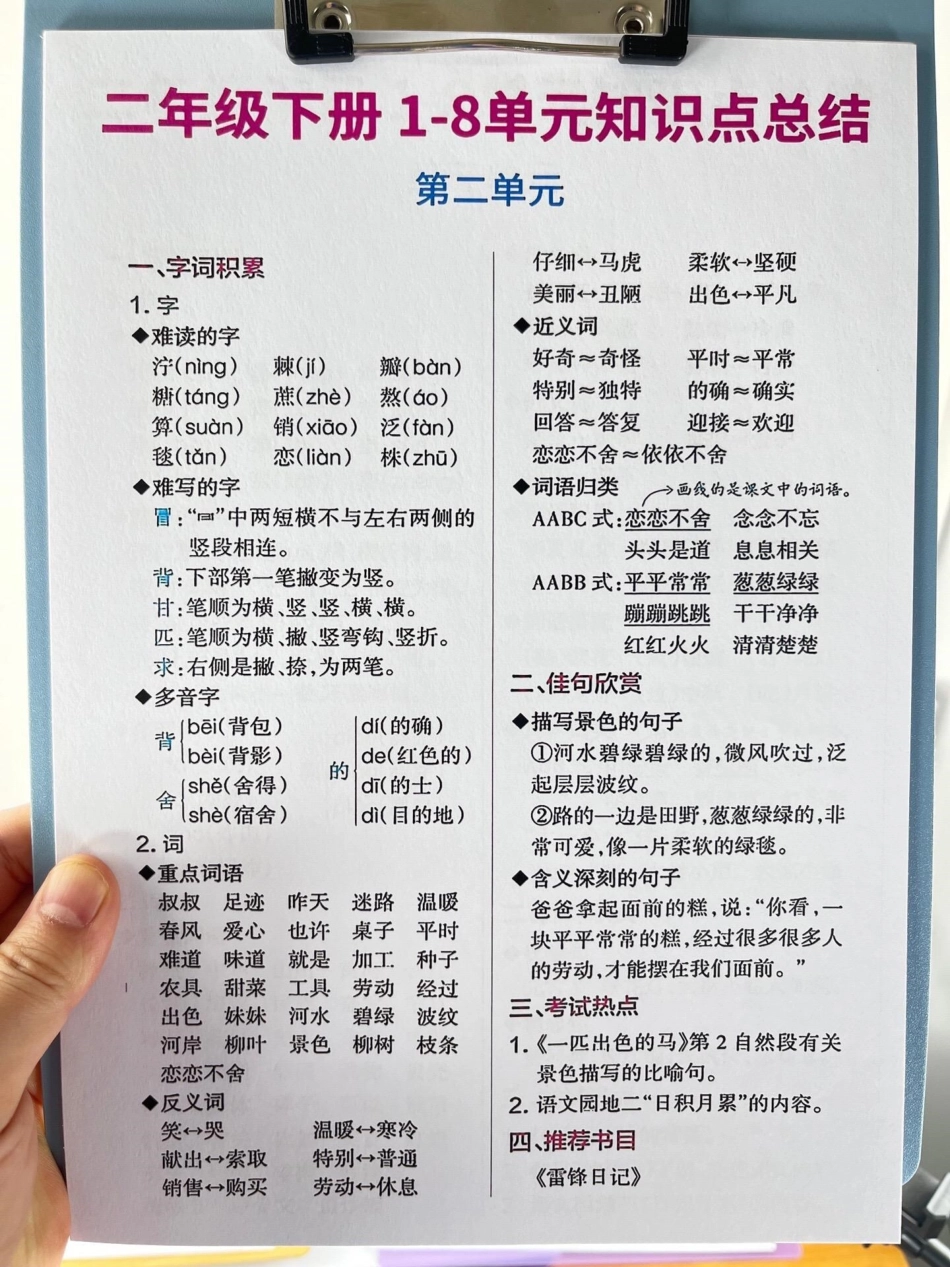 二年级下册 1-8单元知识点总结
第二单元
一、字词积累
1. 字
◆难读的字
泞(nìng) 棘(jí) 瓣(bàn)
糖(táng) 蔗(zhè) 熬(áo)
算(suàn) 销(xiāo) 泛(fàn)
毯(tǎn) 恋(liàn) 株(zhū)
◆难写的字
冒:“冃”中两短横不与左右两侧的
竖段相连。
背:下部第一笔撇变为竖。
甘:笔顺为横、竖、竖、横、横。
匹:笔顺为横、撇、竖弯钩、竖折。
求:右侧是撇、捺,为两笔。
◆多音字
背 bēi(背包)
bèi(背影)
舍 shě(舍得)
shè(宿舍)
的 dí(的确)
de(红色的)
dī(的士)
dì(目的地)
2. 词
◆重点词语
叔叔 足迹 昨天 迷路 温暖
春风 爱心 也许 桌子 平时
难道 味道 就是 加工 种子
农具 甜菜 工具 劳动 经过
出色 妹妹 河水 碧绿 波纹
河岸 柳叶 景色 柳树 枝条
恋恋不舍
◆反义词
笑↔哭 温暖↔寒冷
献出↔索取 特别↔普通
销售↔购买 劳动↔休息
仔细↔马虎 柔软↔坚硬
美丽↔丑陋 出色↔平凡
◆近义词
好奇≈奇怪 平时≈平常
特别≈独特 的确≈确实
回答≈答复 迎接≈欢迎
恋恋不舍≈依依不舍
◆词语归类 画线的是课文中的词语。
AABC 式:恋恋不舍 念念不忘
头头是道 息息相关
AABB 式:平平常常 葱葱绿绿
蹦蹦跳跳 干干净净
红红火火 清清楚楚
二、佳句欣赏
◆描写景色的句子
①河水碧绿碧绿的,微风吹过,泛
起层层波纹。
②路的一边是田野,葱葱绿绿的,非
常可爱,像一片柔软的绿毯。
◆含义深刻的句子
爸爸拿起面前的糕,说:“你看,一
块平平常常的糕,经过很多很多人
的劳动,才能摆在我们面前。”
三、考试热点
1.《一匹出色的马》第 2 自然段有关
景色描写的比喻句。
2. 语文园地二“日积月累”的内容。
四、推荐书目
《雷锋日记》